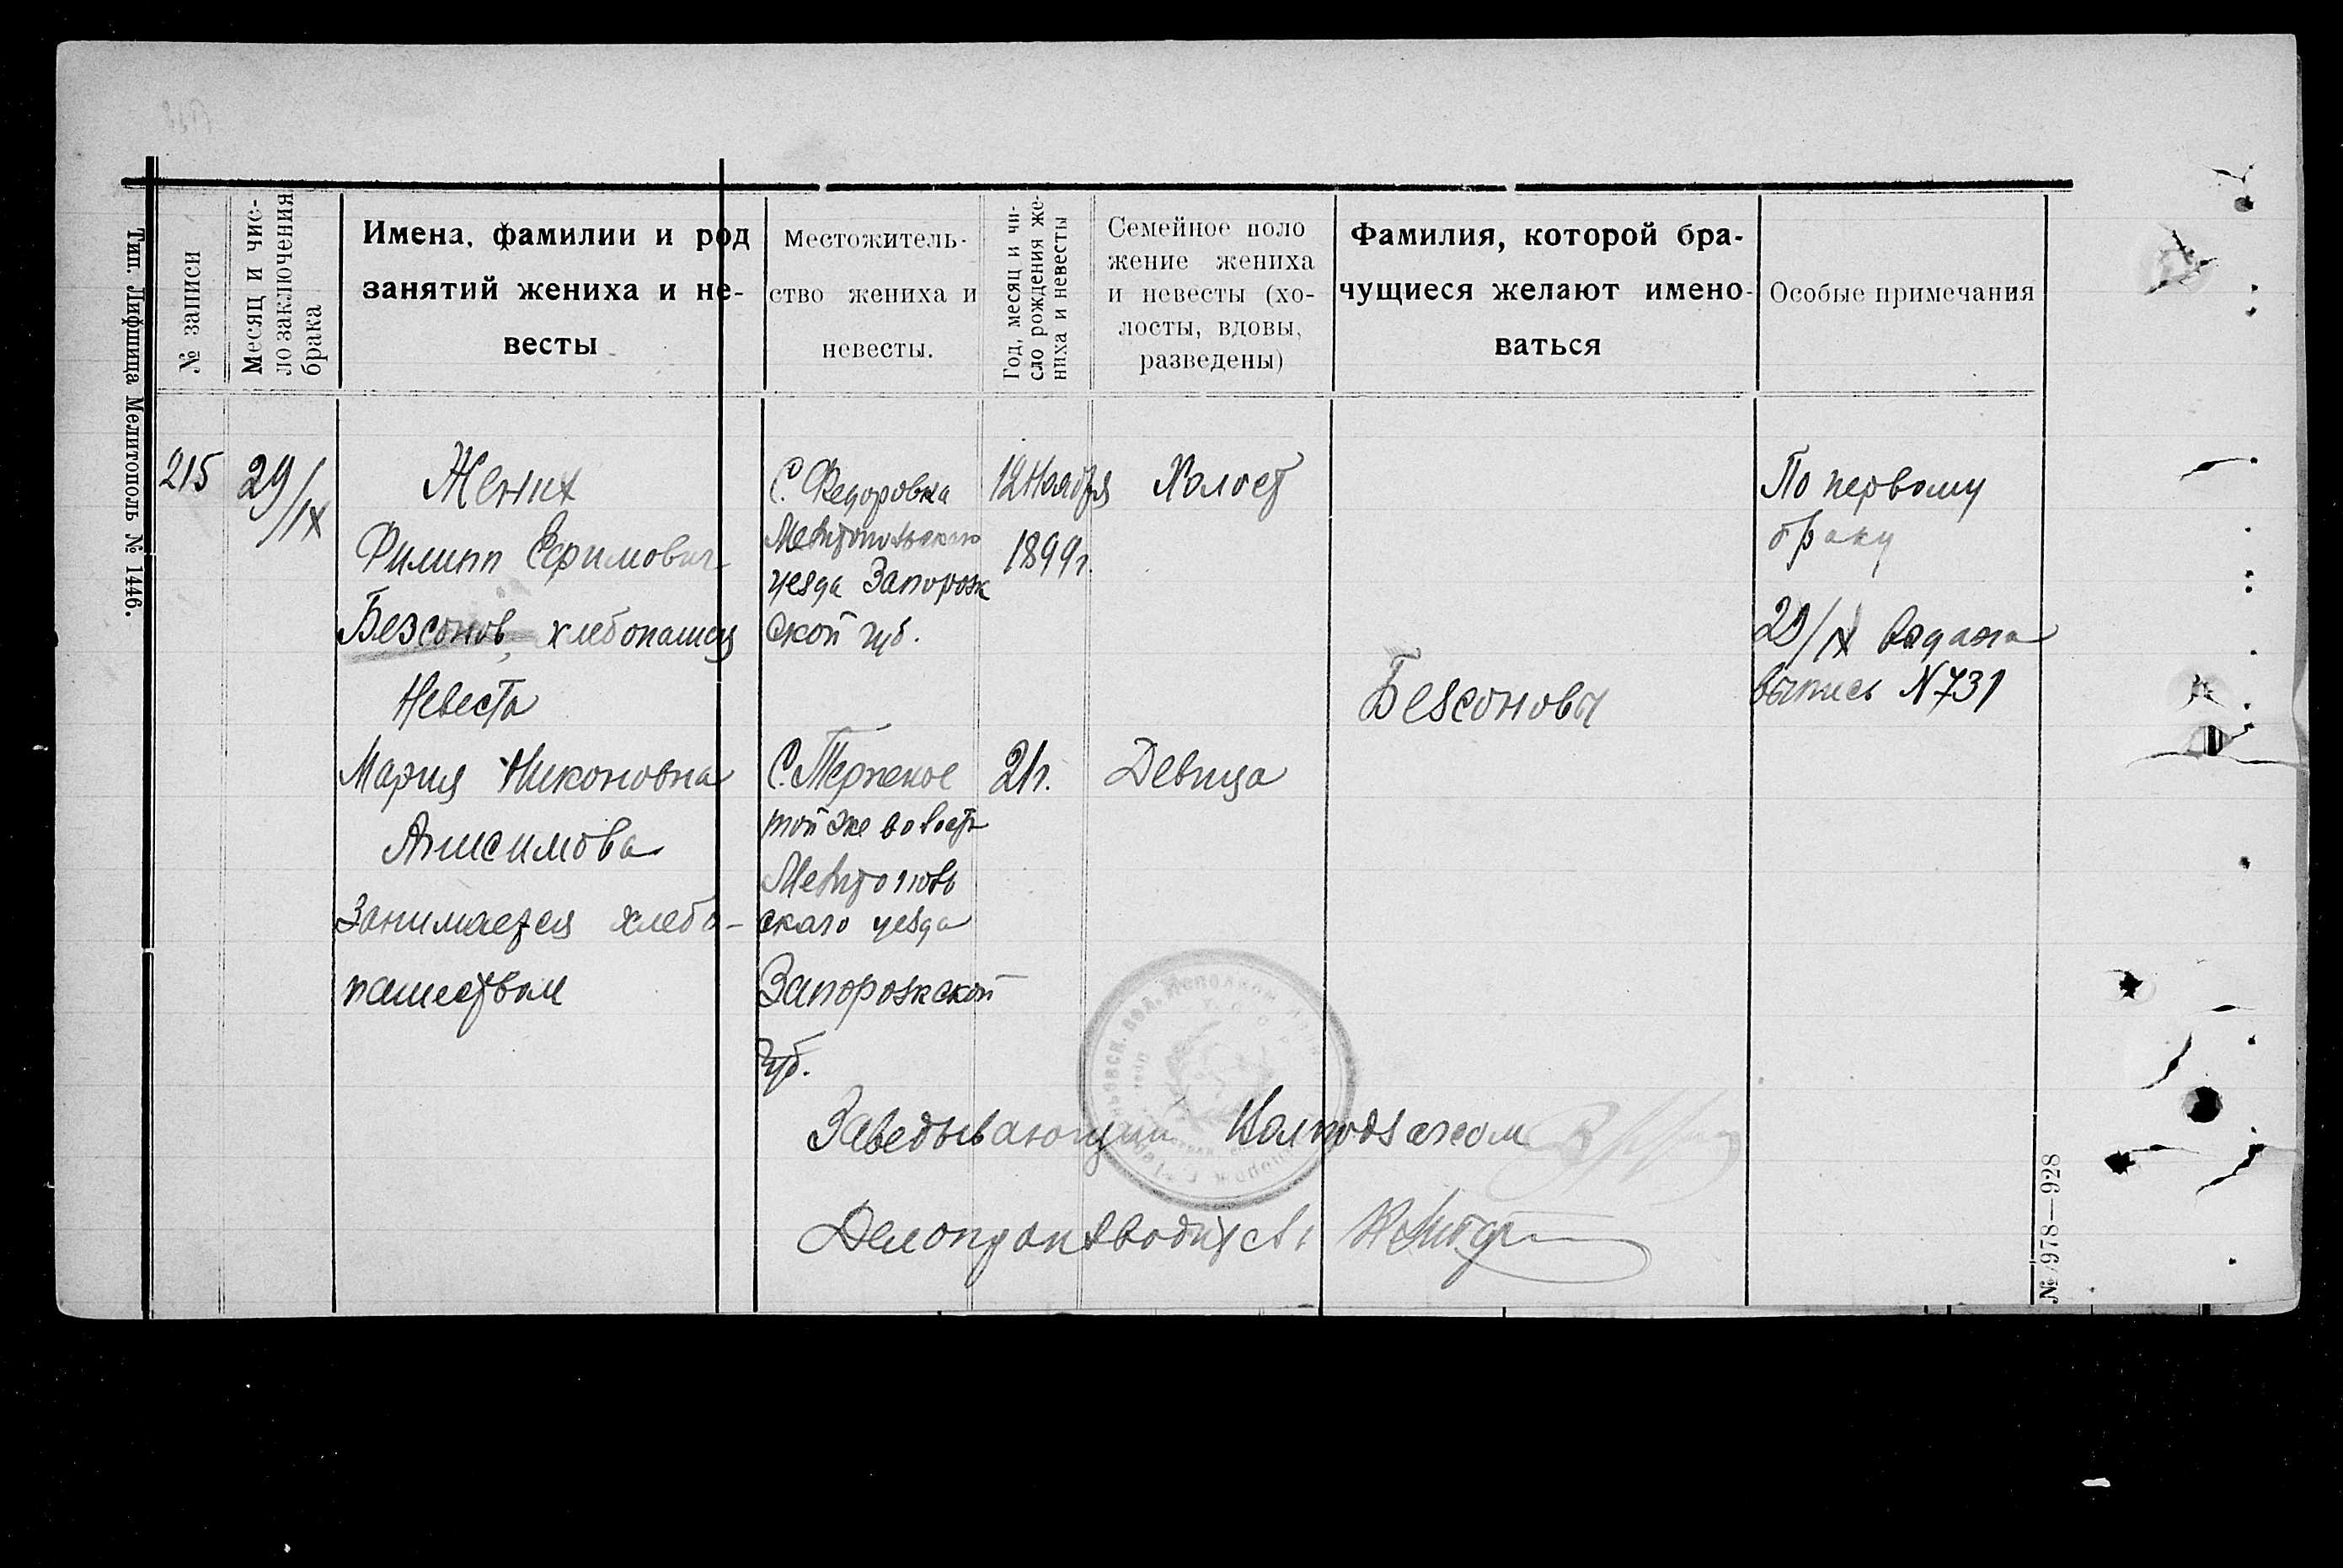 № записи
Месяц и чис-
ло заключения
брака
Имена, фамилии и род
занятий жениха и не-
весты
Местожитель-
ство жениха и
невесты.
Год, месяц и чи-
сло рождения же-
ниха и невесты
Семейное поло
жение жениха
и невесты (хо-
лосты, вдовы,
разведены)
Фамилия, которой бра-
чущиеся желают имено-
ваться
Особые примечания
Тип. Лифшица Мелитополь № 1446.
215
29/IX
Жених
Филипп Ефимович
Безсонов, хлебопашец
Невеста
Мария Никоновна
Анисимова
Занимается хлебо-
пашеством
С. Федоровка
Мелитопольскаго
уезда Запорож
ской губ.
С. Терпение
той же волости
Мелитополь
скаго уезда
Запорожской
губ.
12 Ноября
1899г.
21г.
Холост
Девица
Безсоновы
По первому
браку
29/IX выдана
выпись N 731
Заведывающий
Делопроизводитель
№ 978—928